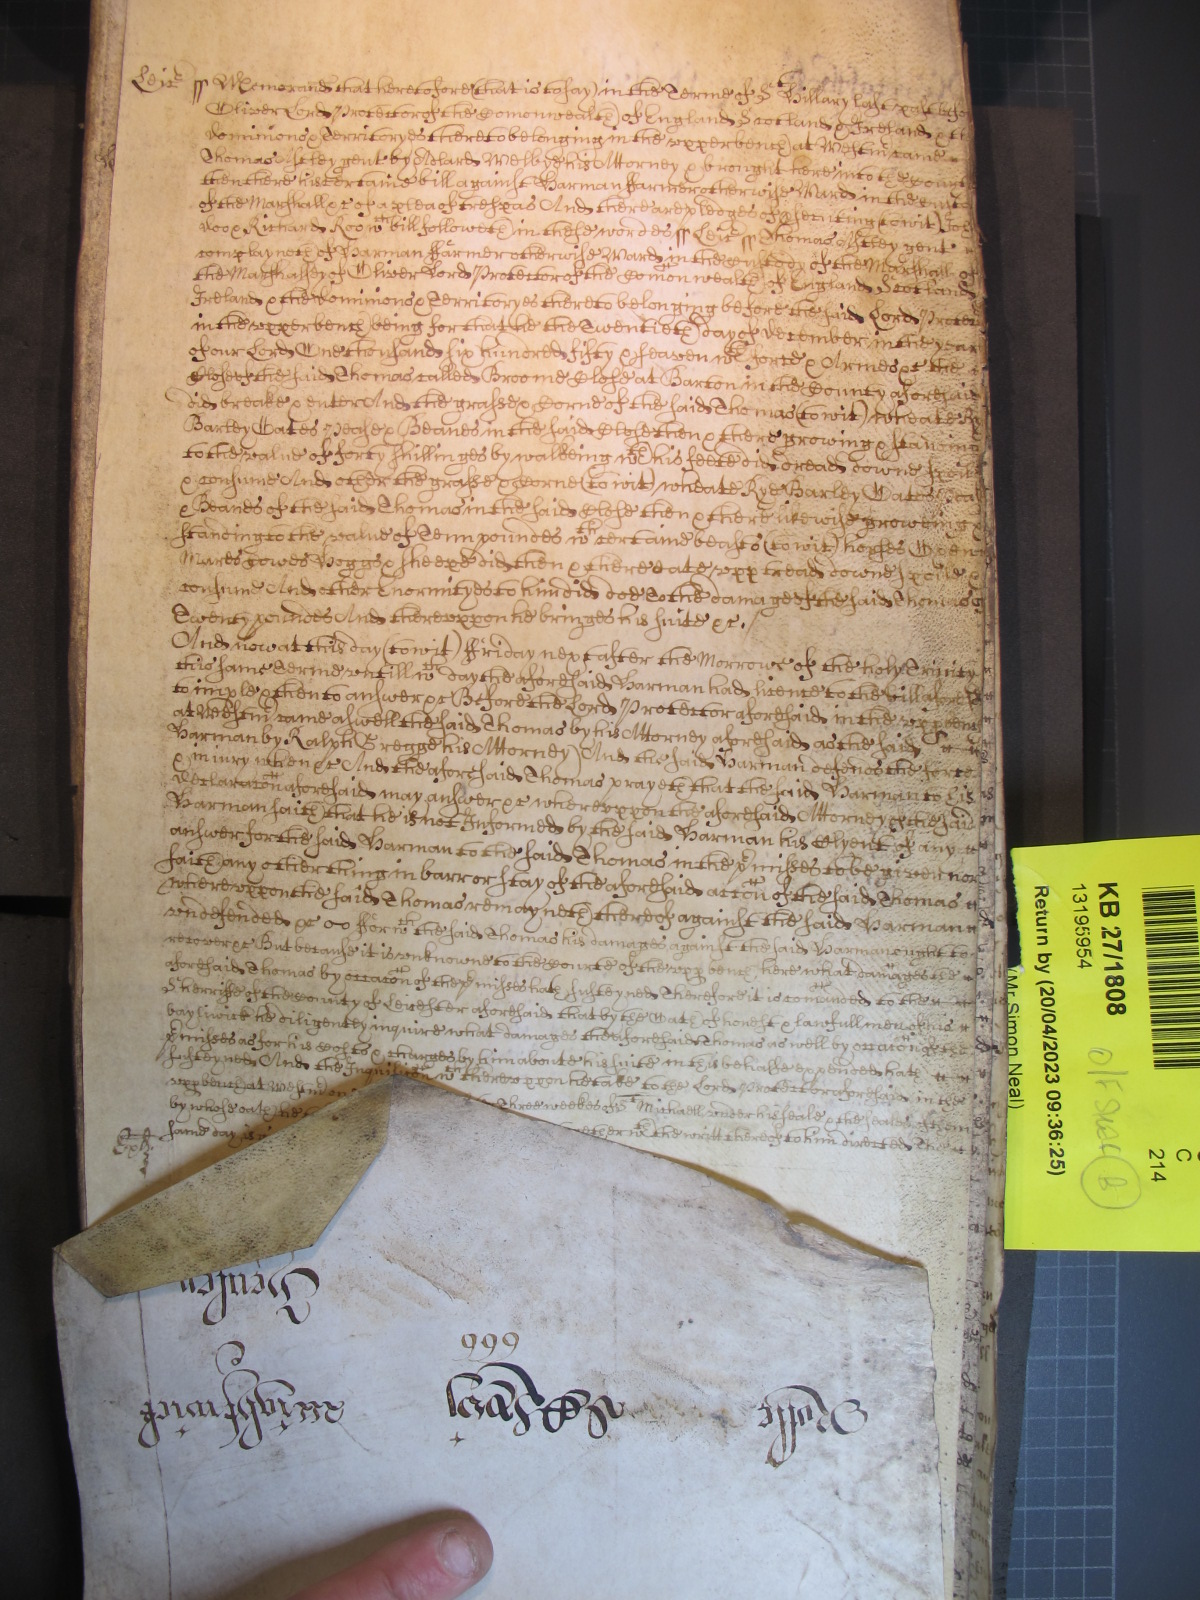 Leic ss Memorand that heretofore (that is to say) in the Terme of St Hillary last past before
Oliver Lord Protector of the Comonwealth of England Scotland & Ireland & the
dominions & Territoryes thereto belonging in the upper bench at Westm came
Thomas Astley gent by Adlard Welby his Attorney & brought here into the Court
then there his certaine bill against Harman Farmer otherwise Ward in the custody
of the Marshall &c of a plea of trespas And there are pledges of prosecuting (to wit) John
Doo & Richard Roo wch bill followeth in these wordes ss Leic ss Thomas Astley gent
complayneth of Harman Farmer otherwise Ward in the Custody of the Marshall of
the Marshalsey of Oliver Lord Protector of the Comon wealth of England Scotland
Ireland & the dominions & Territoryes thereto belonging before the said Lord Protector
in the upper bench being for that he the Twentieth day of December in the year
of our Lord One thousand six hundred fifty & seaven wth force & Armes &c the
Close of the said Thomas called Broome Close at Barton in the County aforesaid
did breake & enter And the grasse & Corne of the said Thomas (to wit) wheate Rye
Barley Oates Pease & Beanes in the said Close then & there growing & standing
to the value of forty shillinges by walkeing wth his feete did tread downe spoile
& consume And other the grasse & Corne (to wit) wheate Rye Barley Oates Pease
& Beanes of the said Thomas in the said Close then & there likewise groweing &
standing to the value of Tenn poundes wth certaine beasts (to wit) horses Oxen
Mares Cowes Hoggs & sheepe did then & there eate upp tread downe spoile &
consume And other Enormityes to him did doe To the damage of the said Thomas of
Twenty poundes And thereuppon he bringes his suite &c.
And now at this day (to wit) Friday next after the Morrowe of the holy Trinity
this same Terme untill wch day the aforesaid Harman had licence to the bill aforesaid
to imple & then to answer &c Before the Lord Protector aforesaid in the upper bench
at Westm came aswell the said Thomas by his Attorney aforesaid as the said
Harman by Ralph Gregge his Attorney And the said Harman defends the force
& injury when &c And the aforesaid Thomas prayeth that the said Harman to his
Declaration aforesaid may answer &c whereuppon the aforesaid Attorney of the said
Harman saith that he is not Informed by the said Harman his Clyent of any
answer for the said Harman to the said Thomas in the pmisses to be given nor
saith any other thing in barr or stay of the aforesaid accon of the said Thomas
whereuppon the said Thomas remayneth thereof against the said Harman
undefended &c Soe for wch the said Thomas his damages against the said Harman ought to
recover &c But because it is unknowne to the Courte of the upp bench here what damages the
aforesaid Thomas by occacon of the pmisses hath susteyned Therefore it is comanded to the
Sherriffe of the County of Leicester aforesaid that by the Oath of honest & lawfull men of his
baylywick he diligently inquire what damages the aforesaid Thomas as well by occacon of the
pmisses as for his Costs & charges by him about his suite in this behalfe expended hath
susteyned And the Inquisicon wch thereuppon he take to the Lord Protector aforesaid in the
upp bench at Westm on Three weekes of St Michaell under his seale & the seales of them
by whose oath he
same day is together wth the writt thereof to him directed
Rolle
666
KB 27/1808
13195954
Return by (20/04/2023 09:36:25)
(Mr Simon Neal)
C
214